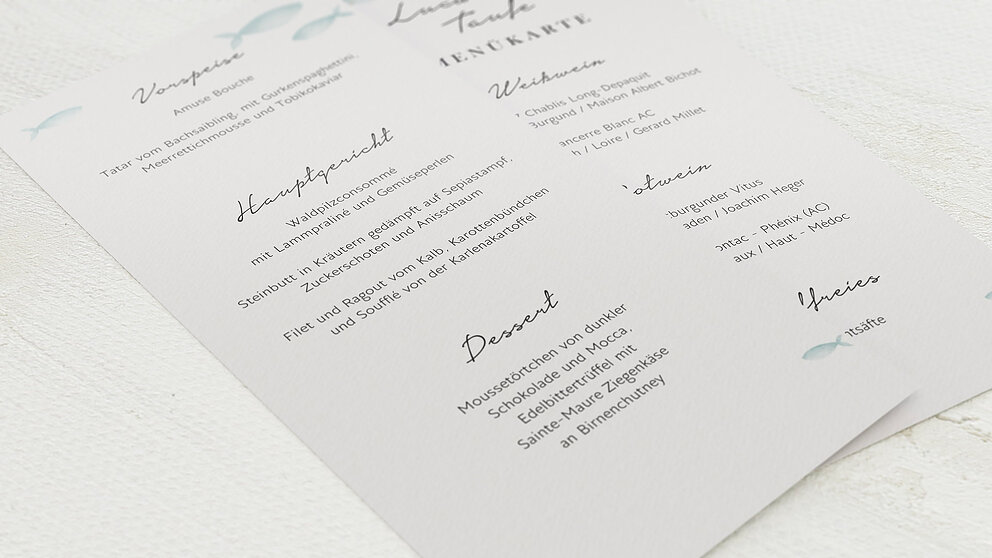 Vorspeise
Amuse Bouche
Tatar vom Bachsaibling, mit Gurkenspaghettini,
Meerrettichmousse und Tobikokaviar
Hauptgericht
Waldpilzconsommé
mit Lammpraliné und Gemüseperlen
Steinbutt in Kräutern gedämpft auf Sepiastampf,
Zuckerschoten und Anisschaum
Filet und Ragout vom Kalb, Karottenbündchen
und Soufflé von der Karlenakartoffel
Dessert
Moussetörtchen von dunkler
Schokolade und Mocca,
Edelbittertrüffel mit
Sainte-Maure Ziegenkäse
an Birnenchutney
Taufe
MENÜKARTE
Weißwein
Chablis Long-Depaquit
Burgund / Maison Albert Bichot
ancerre Blanc AC
h / Loire / Gerard Millet
otwein
burgunder Vitus
aden / Joachim Heger
ontac - Phénix (AC)
aux / Haut - Médoc
freies
tsäfte